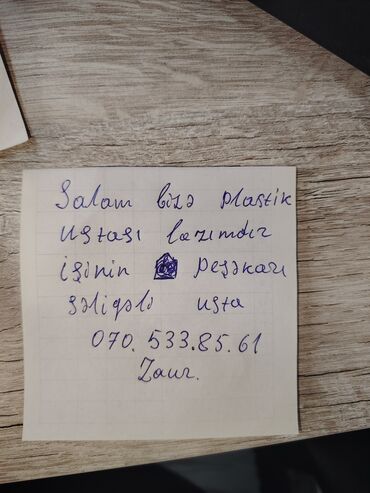 Salam bizə plastik
ustası lazımdır
işinin peşəkarı
səliqəli usta
070.533.85.61
Zaur.